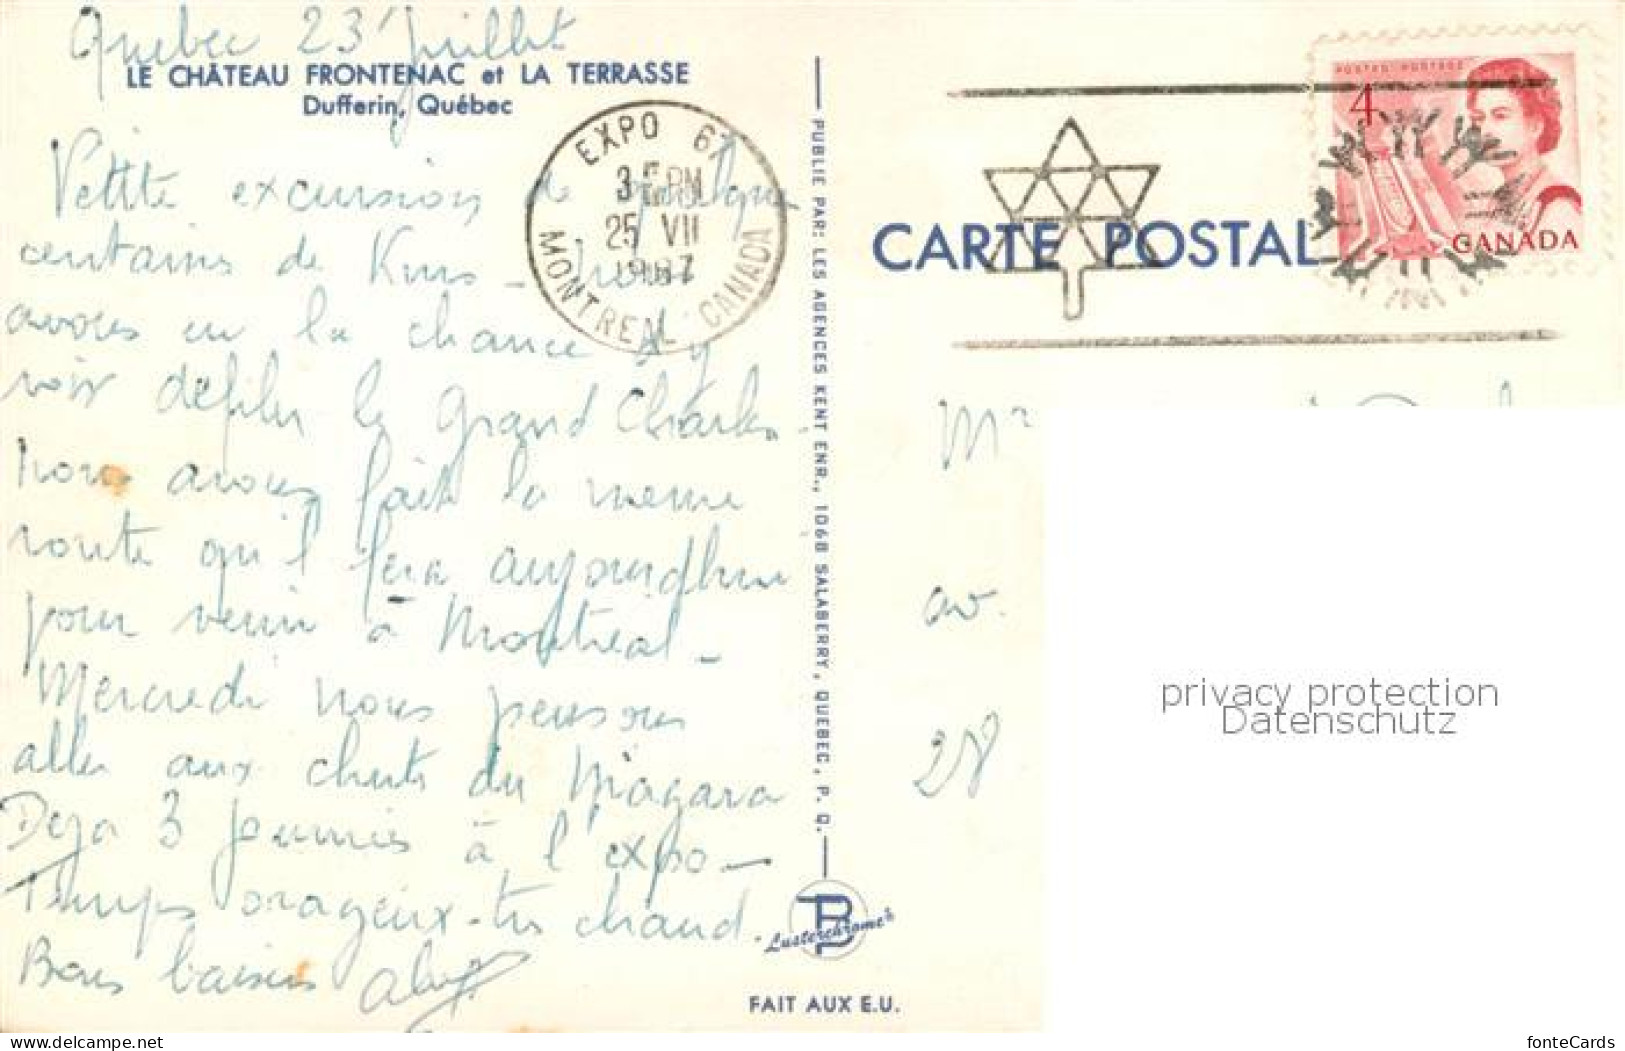 Quebec 23 Juillet
LE CHÂTEAU FRONTENAC et LA TERRASSE
Dufferin, Québec
Petite excursion de quelque
centaines de Kms - nous
avons eu la chance d'y
voir défiler le grand Charles -
nous avons fait la meme
route qu'il fera aujourdhui
pour venir à Montréal -
Mercredi nous pensons
aller aux chuts du Niagara
Deja 3 journées à l'expo -
Temps orageux - très chaud.
Bons baisers
EXPO 67
PM
25 VII
1967
MONTREAL CANADA
PUBLIE PAR: LES AGENCES KENT ENR., 1068 SALABERRY, QUEBEC, P. Q.
CARTE POSTALE
POSTES POSTAGE
4
CANADA
Mr
av.
28
privacy protection
Datenschutz
Lusterchrome
FAIT AUX E.U.
www.delcampe.net
fonteCards